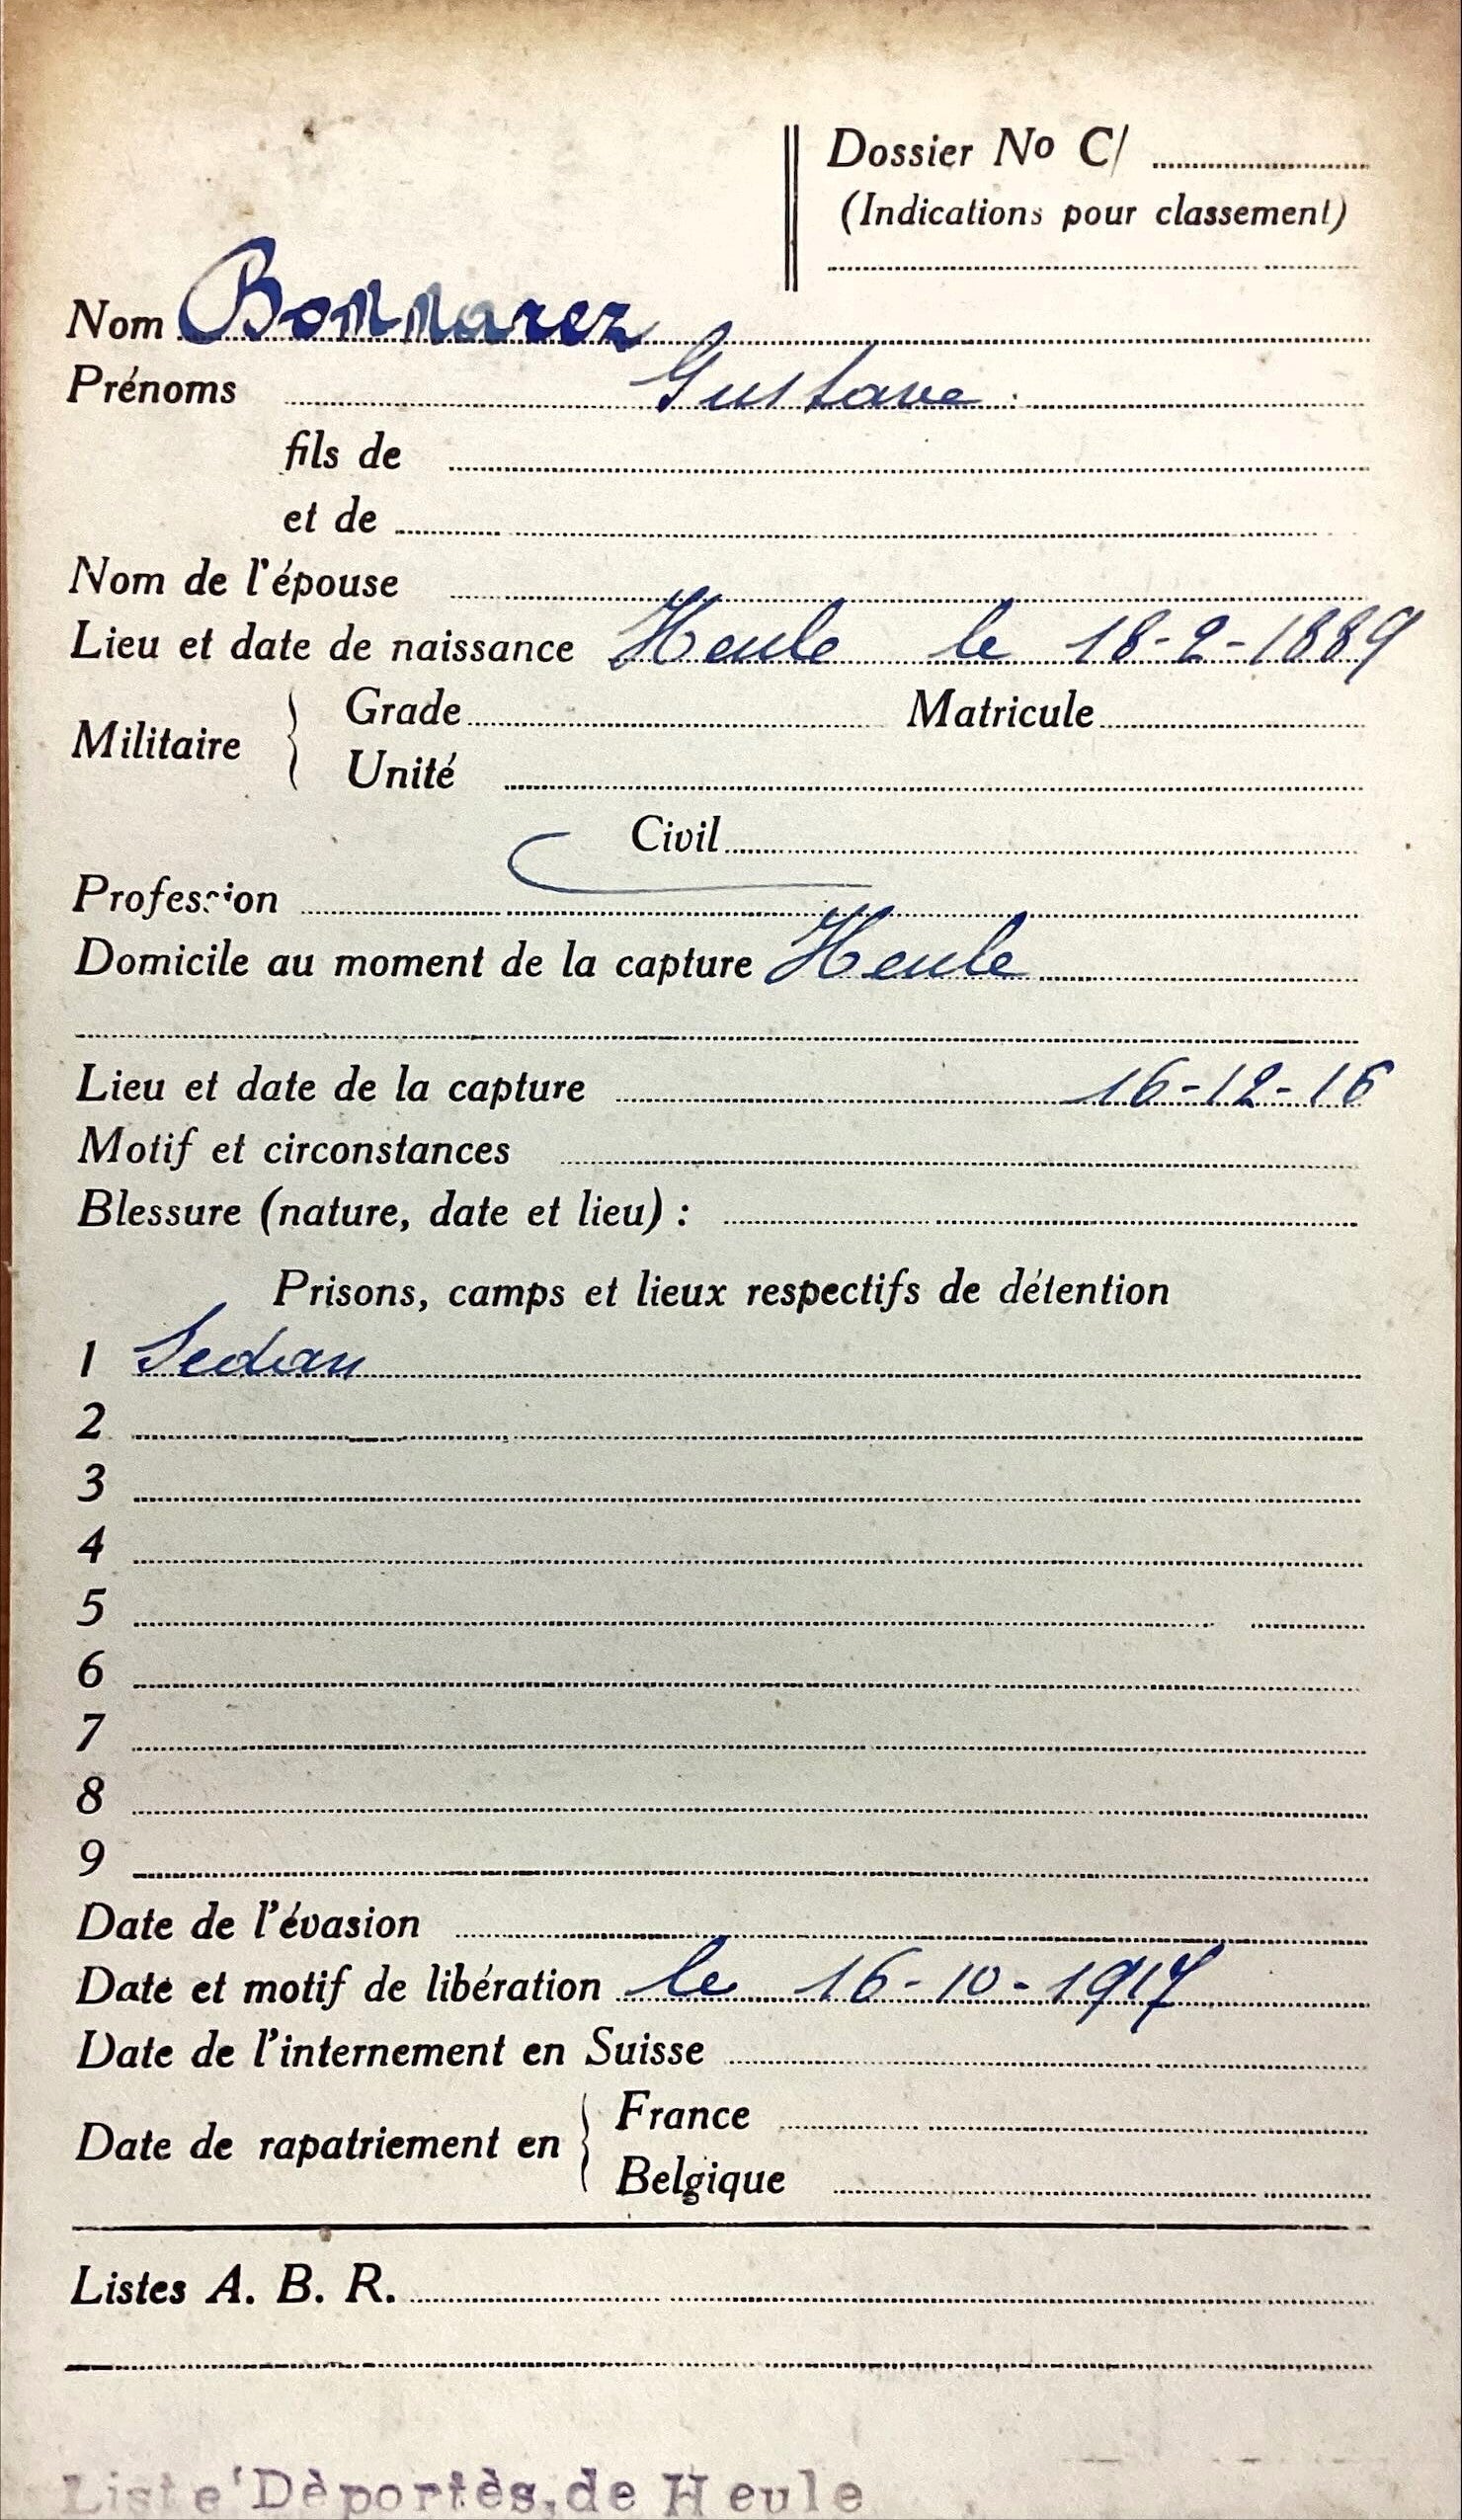 Dossier No C/
(Indications pour classement)
Nom Bommarez
Prénoms Gustave.
fils de
et de
Nom de l'épouse
Lieu et date de naissance Heule le 18-2-1889
Militaire { Grade Matricule
Unité
Civil
Profession
Domicile au moment de la capture Heule
Lieu et date de la capture 16-12-16
Motif et circonstances
Blessure (nature, date et lieu) :
Prisons, camps et lieux respectifs de détention
1 Sedan
2
3
4
5
6
7
8
9
Date de l'évasion
Date et motif de libération le 16-10-1917
Date de l'internement en Suisse
Date de rapatriement en { France
Belgique
Listes A. B. R.
Liste'Dèportès,de Heule